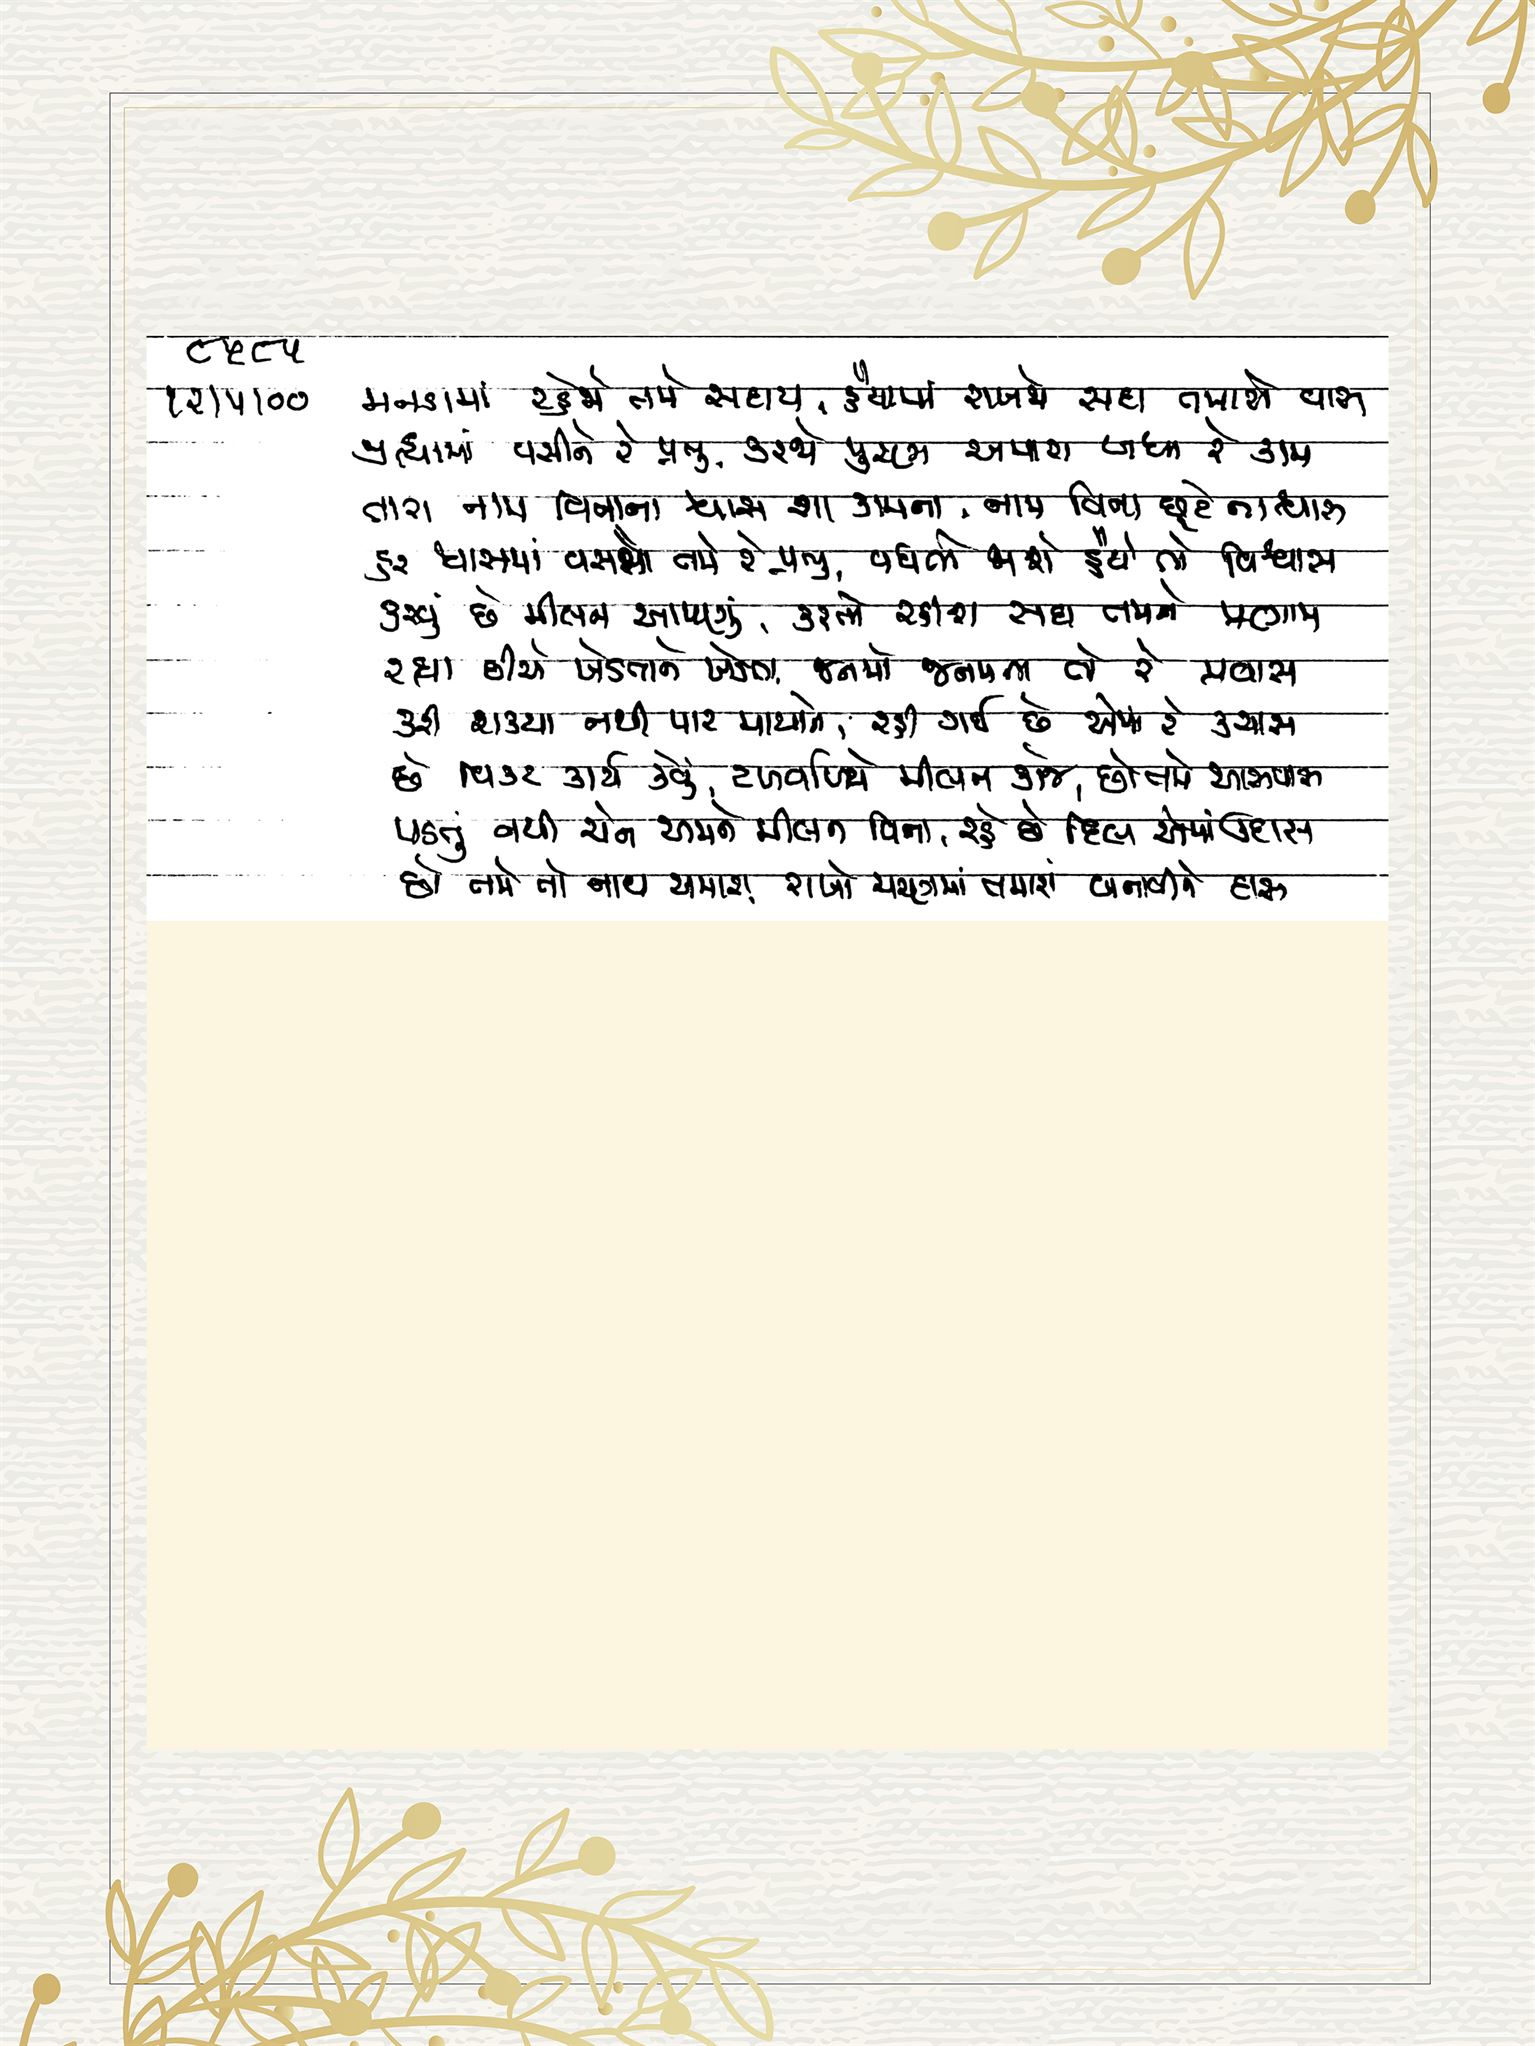 ૮૫૮૫
૧૨/૫/૦૦ મનડામાં રહેજો તમે સદાય, હૈયામાં રાખજો સદા તમારો વાસ
શ્વાસોમાં વસીને રે પ્રભુ, કરજો પુરાણ અમારા બધા રે કામ
તારા નામ વિનાના શ્વાસ શા કામના, નામ વિના છૂટે ના શ્વાસ
હર શ્વાસમાં વસજો તમે રે પ્રભુ, વધતો જાશે હૈયે તો વિશ્વાસ
કરવું છે મીલન આપણું, કરતો રહીશ સદા તમને પ્રણામ
રહ્યા છીએ ખેડતાને ખેડતા, જનમો જનમના તો રે પ્રવાસ
કરી શક્યા નથી પાર પામીને, રહી ગઈ છે એમાં રે કચાશ
છે વિકટ કાર્ય કેવું, ટળવળિયે મીલન કાજે, છો તમે આસપાસ
પડતું નથી ચેન અમને મીલન વિના, રહે છે દિલ એમાં ઉદાસ
છો તમે તો નાથ અમારા, રાખો ચરણમાં તમારાં બનાવીને દાસ